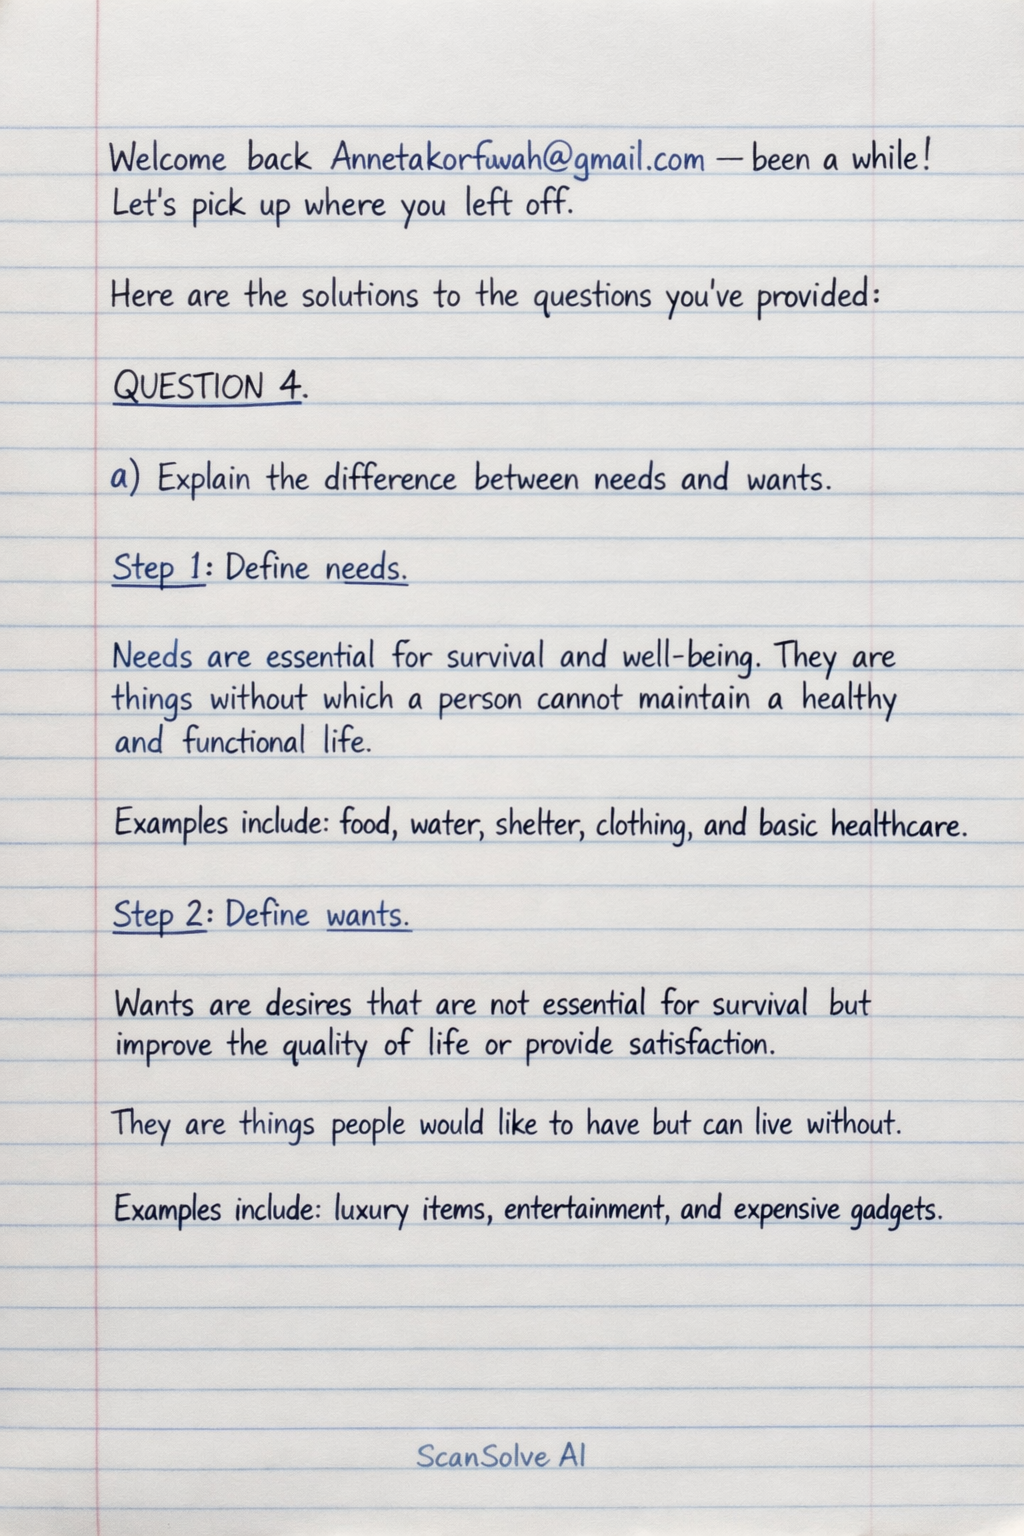 Welcome back Annetakorfuwah@gmail.com — been a while!
Let's pick up where you left off.
Here are the solutions to the questions you've provided:
QUESTION 4.
a) Explain the difference between needs and wants.
Step 1: Define needs.
Needs are essential for survival and well-being. They are
things without which a person cannot maintain a healthy
and functional life.
Examples include: food, water, shelter, clothing, and basic healthcare.
Step 2: Define wants.
Wants are desires that are not essential for survival but
improve the quality of life or provide satisfaction.
They are things people would like to have but can live without.
Examples include: luxury items, entertainment, and expensive gadgets.
ScanSolve AI